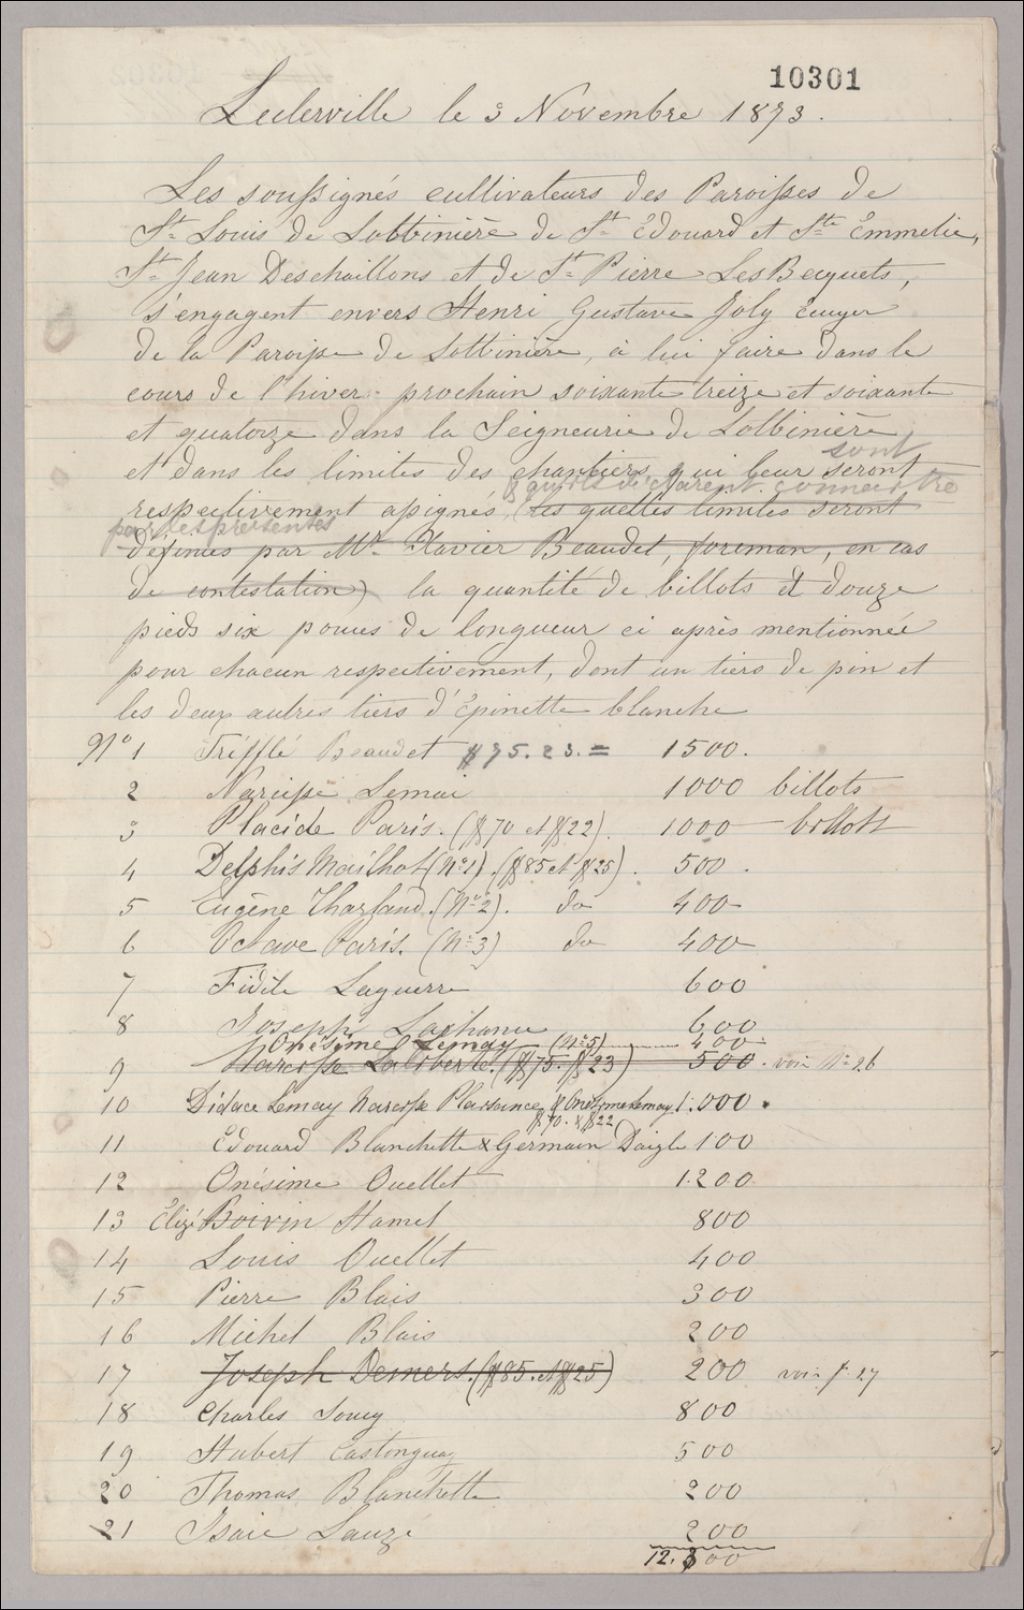 10301
Leclerville le 3 Novembre 1873.
Les soussignés cultivateurs des Paroisses de
St Louis de Lotbinière de St Édouard et Ste Émmelie,
St Jean Deschaillons et de St Pierre Les Becquets,
s'engagent envers Henri Gustave Joly Écuyer
de la Paroisse de Lotbinière, à lui faire dans le
cours de l'hiver prochain soixante treize et soixante
et quatorze dans la Seigneurie de Lotbinière
sont
et dans les limites des chantiers qui leur seront
& qu'ils déclarent connaitre
respectivement assignés, (les quelles limites seront
par les presentes
définies par Mr. Xavier Beaudet, foreman, en cas
de contestation) la quantité de billots d douze
pieds six pouces de longueur ci après mentionnée
pour chacun respectivement, dont un tiers de pin et
les deux autres tiers d'Épinette blanche
No 1 Trifflé Beaudet $75.23.= 1500.
2 Narcisse Lemai 1000 billots
3 Placide Paris. ($70 et $22). 1000 billots
4 Delphis Mailhot (No 1). ($85 et $25). 500.
5 Eugène Tharland. (No 2). do 400
6 Octave Paris. (No 3) do 400
7 Fidèle Laguerre 600
8 Joseph Lachance 600
Onésime Lemay (No 5) 400
9 Narcisse Laliberté. ($75. $23) 500. voir No 26
10 Didace Lemay Narcisse Plaisance & Onézime Lemay 1.000.
$70. & $22
11 Édouard Blanchette & Germain Daigle 100
12 Onésime Ouellet 1.200
13 Élizé Boivin Hamel 800
14 Louis Ouellet 400
15 Pierre Blais 300
16 Michel Blais 200
17 Joseph Demers. ($85. et $25) 200 voir 27
18 Charles Soucy 800
19 Hubert Castonguay 500
20 Thomas Blanchette 200
21 Isaie Lauzé 200
12.800